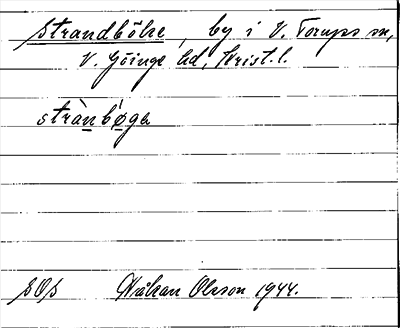 Strandböke, by i V. Torups sn,
V. Göinge hd, Krist. l.
strànbǿga
SOS Håkan Olsson 1944.